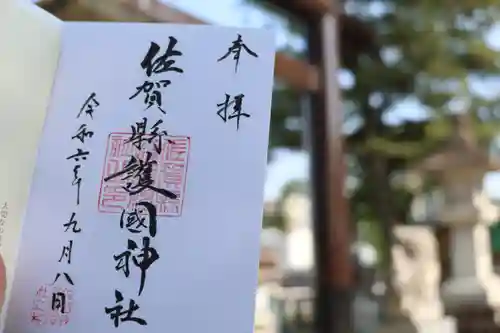 奉拝
佐賀縣護國神社
令和六年九月八日